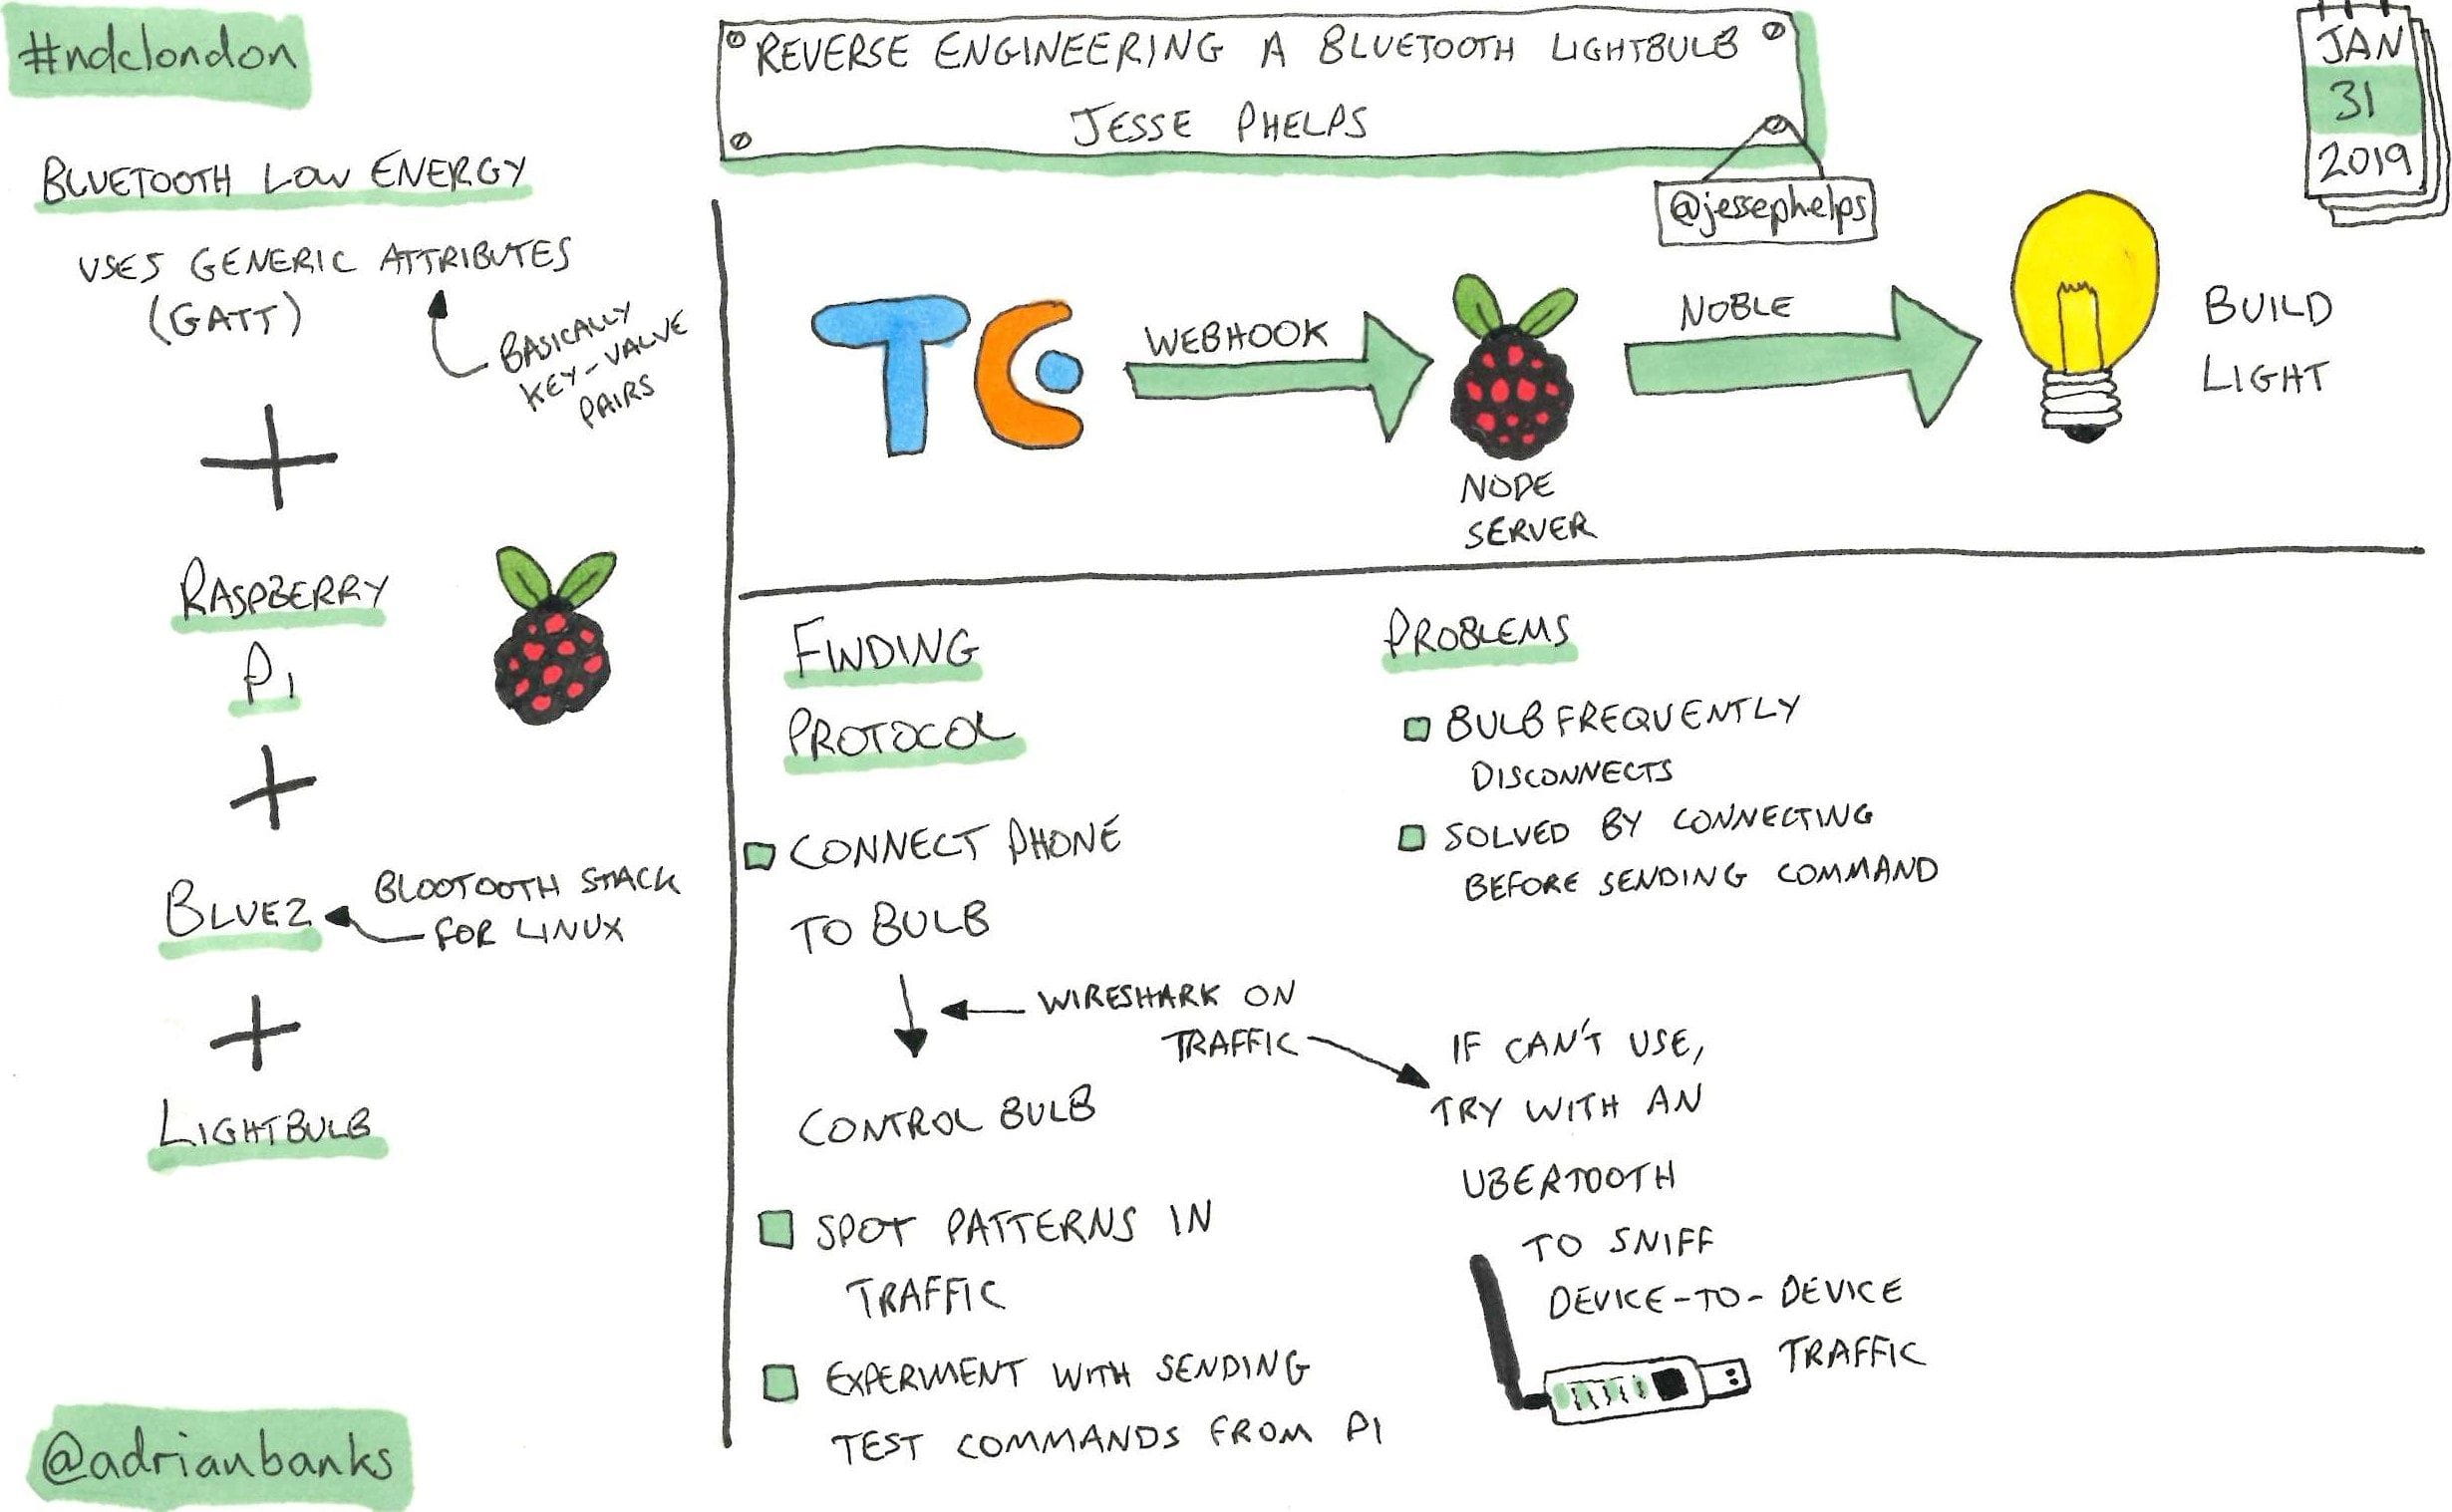 #ndclondon
REVERSE ENGINEERING A BLUETOOTH LIGHTBULB
JESSE PHELPS
@jessephelps
JAN
31
2019
BLUETOOTH LOW ENERGY
USES GENERIC ATTRIBUTES
(GATT)
BASICALLY
KEY-VALUE
PAIRS
+
RASPBERRY
PI
+
BLUEZ
BLOOTOOTH STACK
FOR LINUX
+
LIGHTBULB
@adrianbanks
TC
WEBHOOK
NODE
SERVER
NOBLE
BUILD
LIGHT
FINDING
PROTOCOL
CONNECT PHONE
TO BULB
WIRESHARK ON
TRAFFIC
CONTROL BULB
SPOT PATTERNS IN
TRAFFIC
EXPERIMENT WITH SENDING
TEST COMMANDS FROM PI
PROBLEMS
BULB FREQUENTLY
DISCONNECTS
SOLVED BY CONNECTING
BEFORE SENDING COMMAND
IF CAN'T USE,
TRY WITH AN
UBERTOOTH
TO SNIFF
DEVICE-TO-DEVICE
TRAFFIC